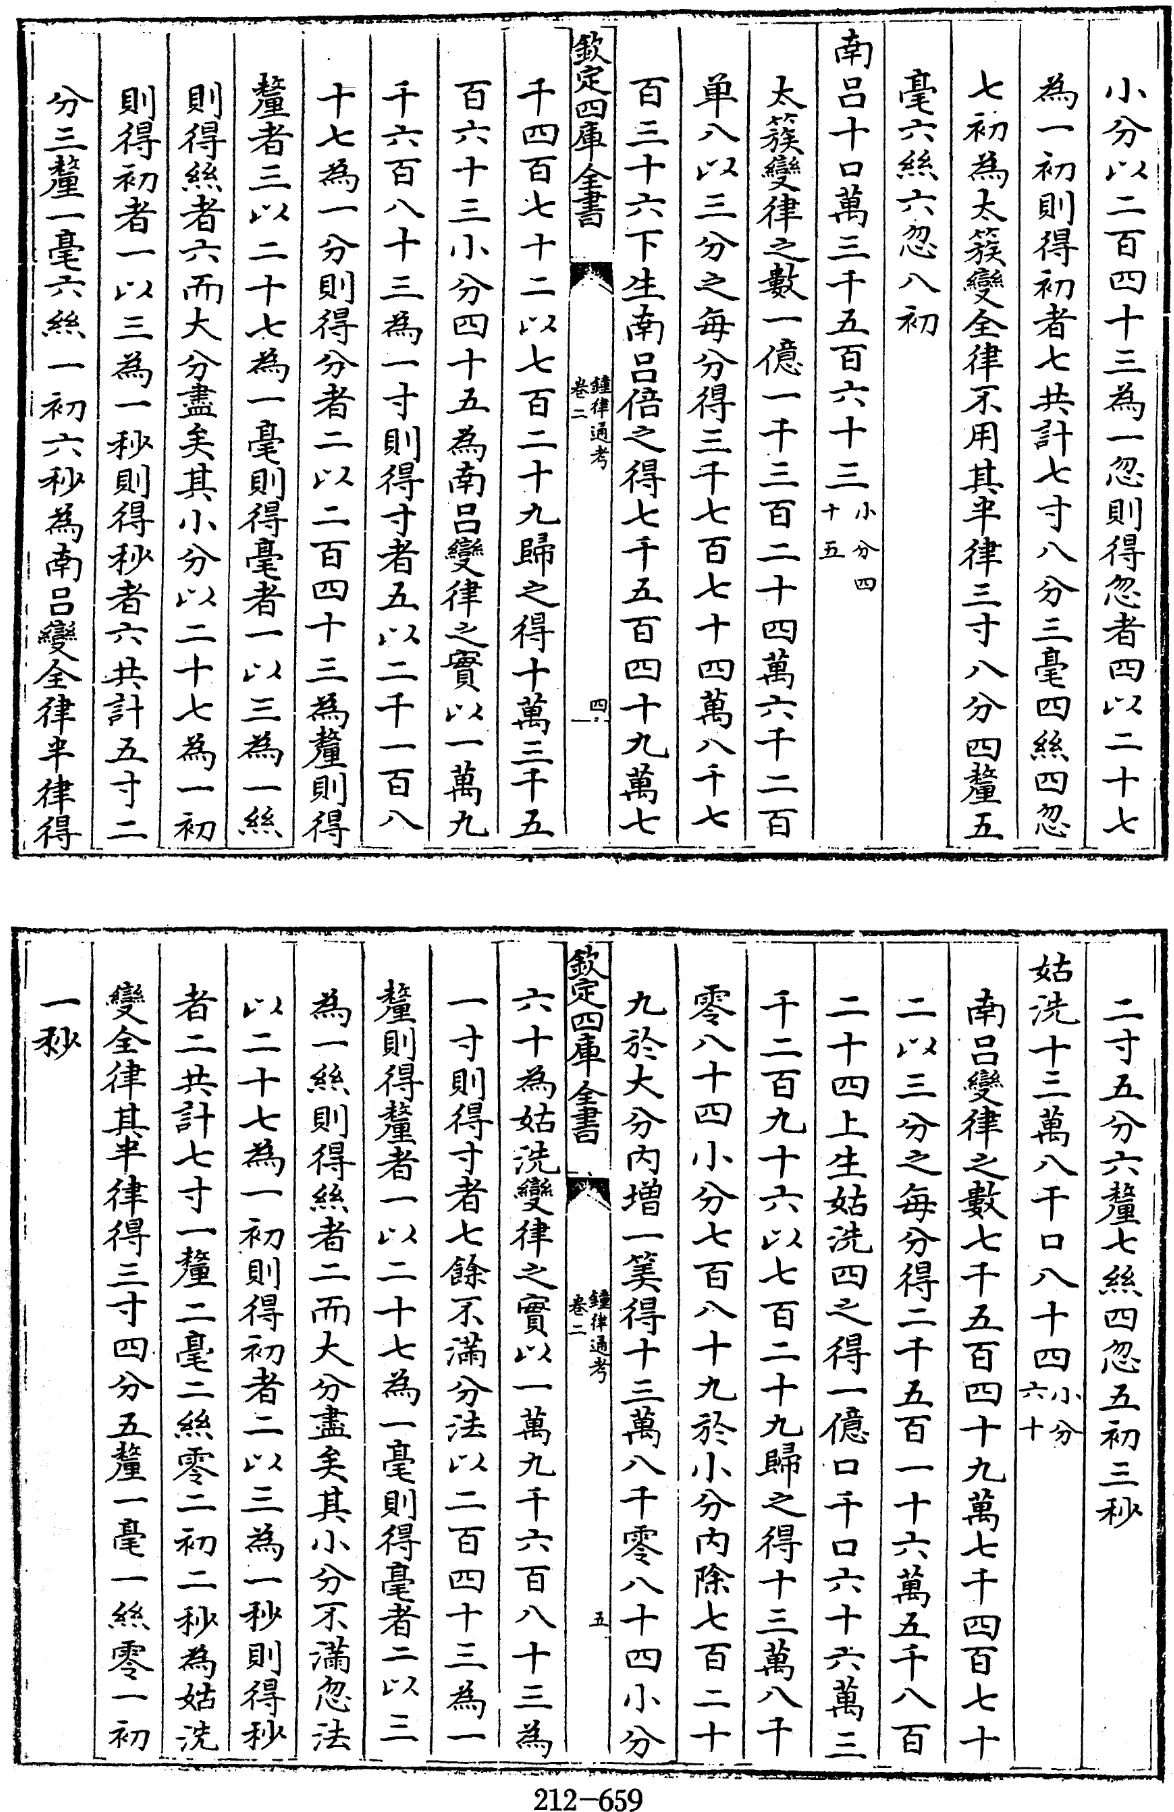 小分以二百四十三為一忽則得忽者四以二十七
為一初則得初者七共計七寸八分三毫四絲四忽
七初為太簇變全律不用其半律三寸八分四釐五
毫六絲六忽八初
南吕十口萬三千五百六十三小分四十五
太簇變律之數一億一千三百二十四萬六千二百
単八以三分之每分得三千七百七十四萬八千七
百三十六下生南吕倍之得七千五百四十九萬七
欽定四庫全書
鐘律通考
卷二
四
千四百七十二以七百二十九歸之得十萬三千五
百六十三小分四十五為南吕變律之實以一萬九
千六百八十三為一寸則得寸者五以二千一百八
十七為一分則得分者二以二百四十三為釐則得
釐者三以二十七為一毫則得毫者一以三為一絲
則得絲者六而大分盡矣其小分以二十七為一初
則得初者一以三為一秒則得秒者六共計五寸二
分三釐一毫六絲一初六秒為南吕變全律半律得
二寸五分六釐七絲四忽五初三秒
姑洗十三萬八千口八十四小分六十
南吕變律之數七千五百四十九萬七千四百七十
二以三分之每分得二千五百一十六萬五千八百
二十四上生姑洗四之得一億口千口六十六萬三
千二百九十六以七百二十九歸之得十三萬八千
零八十四小分七百八十九於小分內除七百二十
九於大分內增一筭得十三萬八千零八十四小分
欽定四庫全書
鐘律通考
卷二
五
六十為姑洗變律之實以一萬九千六百八十三為
一寸則得寸者七餘不滿分法以二百四十三為一
釐則得釐者一以二十七為一毫則得毫者二以三
為一絲則得絲者二而大分盡矣其小分不滿忽法
以二十七為一初則得初者二以三為一秒則得秒
者二共計七寸一釐二毫二絲零二初二秒為姑洗
變全律其半律得三寸四分五釐一毫一絲零一初
一秒
212-659